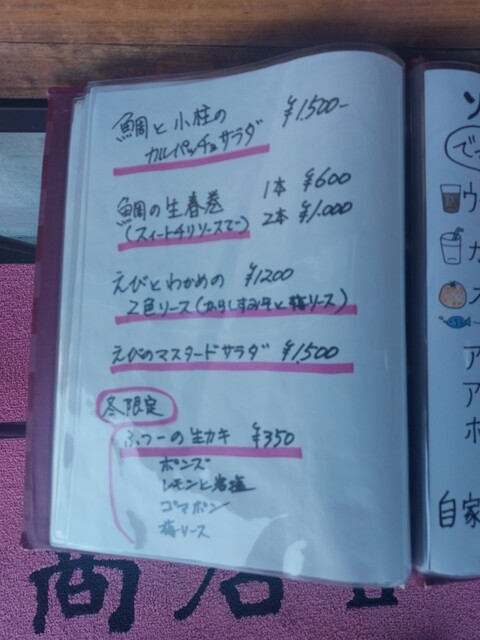 鯛と小柱の ¥1,500-
カルパッチョサラダ
鯛の生春巻 1本 ¥600
(スィートチリソースで) 2本 ¥1,000
えびとわかめの ¥1200
2色ソース(からしすみそと梅ソース)
えびのマスタードサラダ ¥1,500
冬限定
ふつーの生カキ ¥350
ポンズ
レモンと岩塩
ゴマポン
梅ソース
ソ
で
ウ
カ
ス
ア
ア
ホ
自家
商店